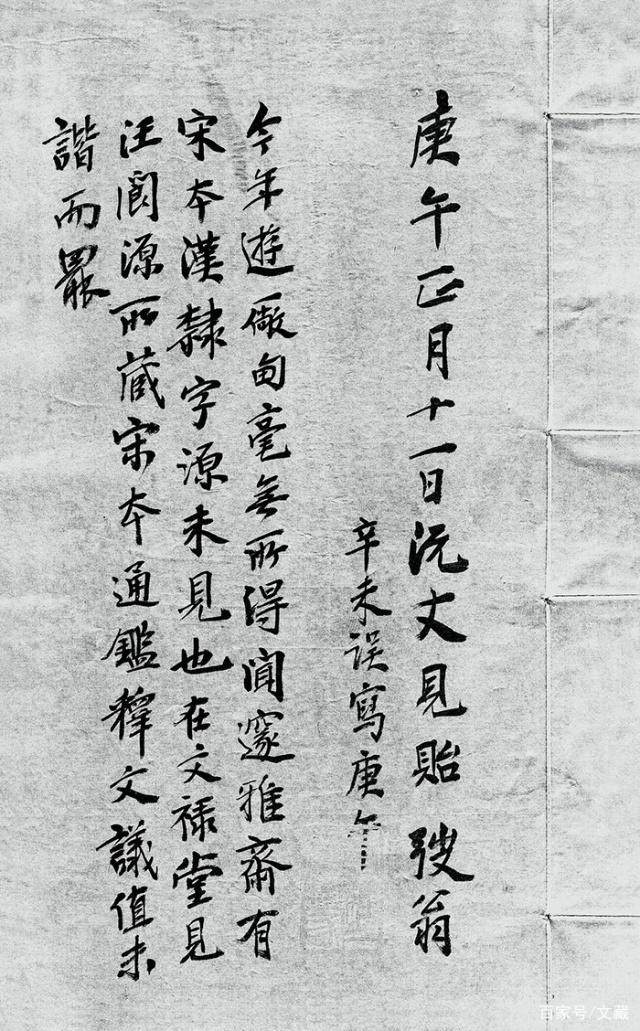 庚午正月十一日沅丈見貽 弢翁
辛未誤寫庚午
今年遊廠甸毫無所得聞邃雅齋有
宋本漢隸字源未見也在文祿堂見
汪閬源所藏宋本通鑑釋文議值未
諧而罷
百家号/文藏